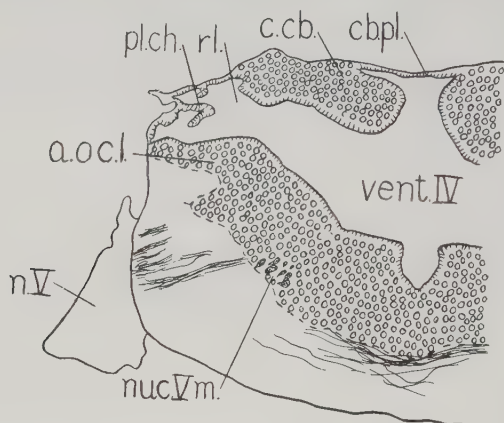 pl.ch. rl. c.cb. cb.pl.
a.oc.l.
vent. IV
n.V
nuc.V m.